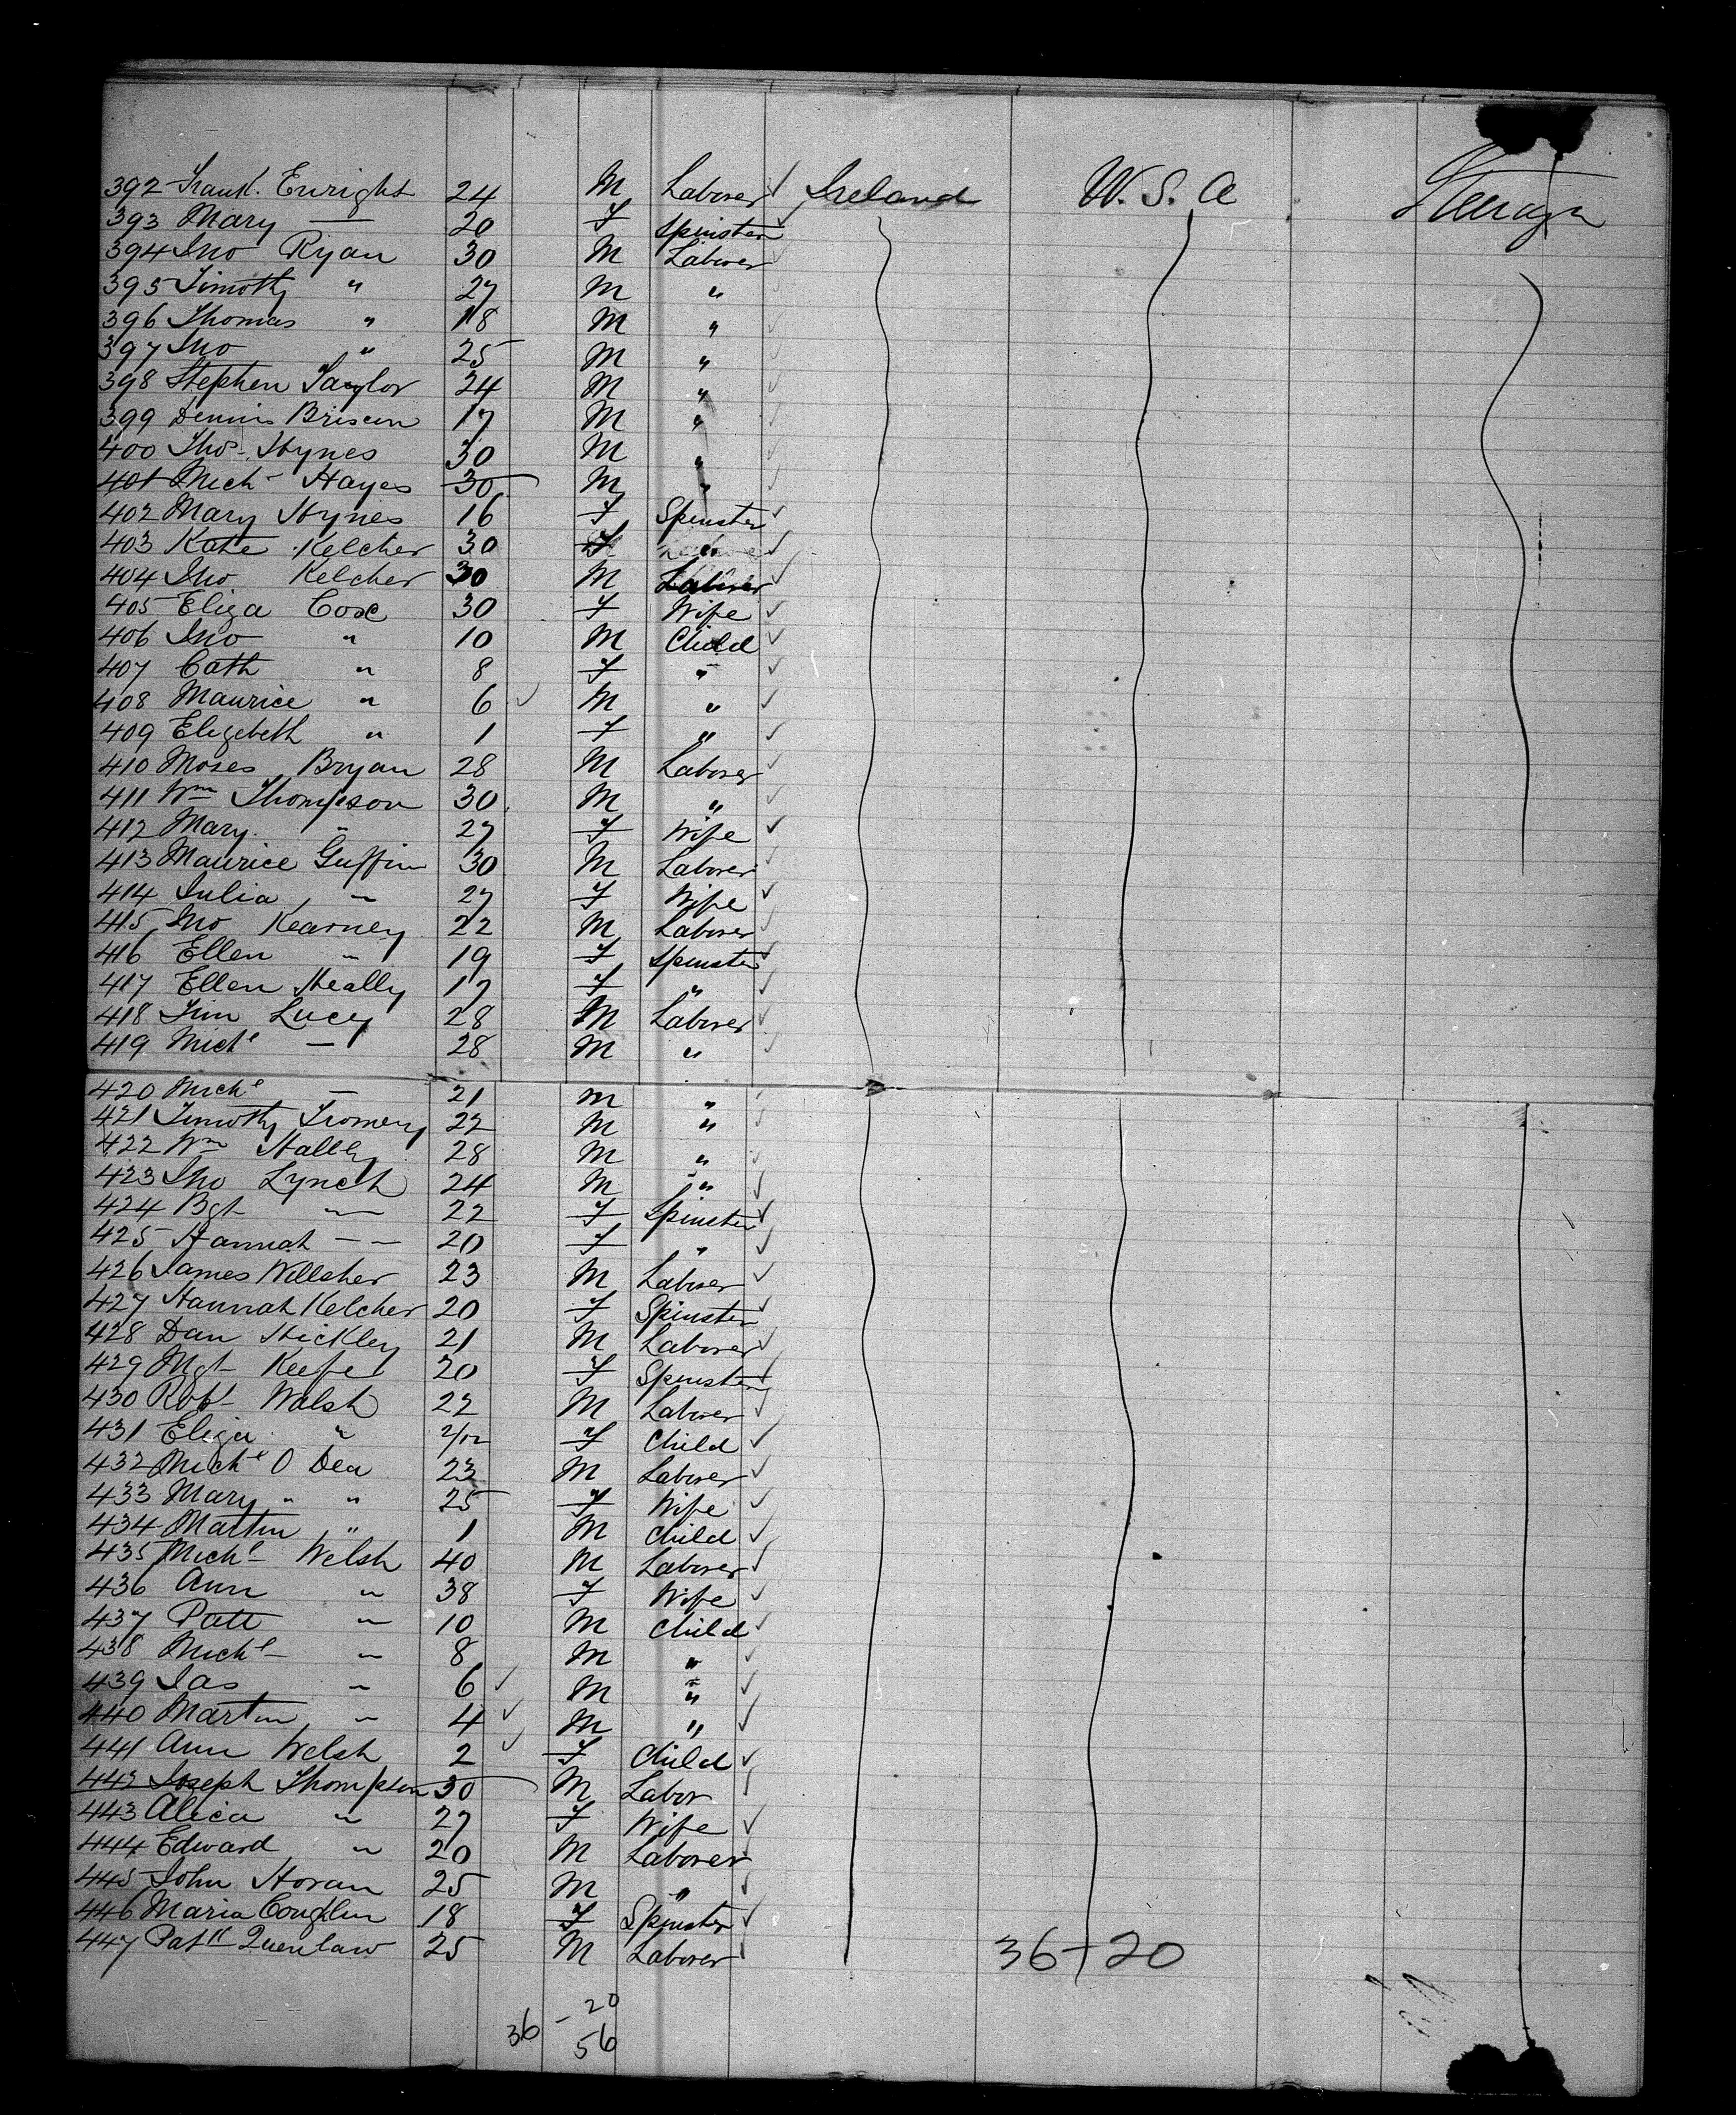 392 Frank. Enright 24 M Laborer ✓ Ireland U.S.A Steerage
393 Mary — 20 F Spinster ✓
394 Jno Ryan 30 M Laborer ✓
395 Timothy " 27 M " ✓
396 Thomas " 18 M " ✓
397 Jno " 25 M " ✓
398 Stephen Taylor 24 M " ✓
399 Dennis 17 M " ✓
400 Thos. Hynes 30 M " ✓
401 Mich Hayes 30 M " ✓
402 Mary Hynes 16 F Spinster ✓
403 Kate Kelcher 30 F " ✓
404 Jno Kelcher 30 M Laborer ✓
405 Eliza Cox 30 F Wife ✓
406 Jno " 10 M Child ✓
407 Cath " 8 F " ✓
408 Maurice " 6 ✓ M " ✓
409 Elizebeth " 1 F " ✓
410 Moses Bryan 28 M Laborer ✓
411 Wm Thompson 30 M " ✓
412 Mary. " 27 F Wife ✓
413 Maurice Guffin 30 M Laborer ✓
414 Julia " 27 F Wife ✓
415 Jno Kearney 22 M Laborer ✓
416 Ellen " 19 F Spinster ✓
417 Ellen Heally 17 F " ✓
418 Jim Lucey 28 M Laborer ✓
419 Michl — 28 M " ✓
420 Michl — 21 M " ✓
421 Timothy 22 M " ✓
422 Wm Halley 28 M " ✓
423 Jno Lynch 24 M " ✓
424 Bgt — 22 F Spinster ✓
425 Hannah — — 20 F " ✓
426 James Willsher 23 M Laborer ✓
427 Hannah Kelcher 20 F Spinster ✓
428 Dan Hickley 21 M Laborer ✓
429 Mgt Keefe 20 F Spinster ✓
430 Robt Walsh 22 M Laborer ✓
431 Eliza " 2/12 F Child ✓
432 Michl O Dea 23 M Laborer ✓
433 Mary " " 25 F Wife ✓
434 Martin " 1 M Child ✓
435 Michl Welsh 40 M Laborer ✓
436 Ann " 38 F Wife ✓
437 Patt " 10 M Child ✓
438 Michl " 8 M " ✓
439 Jas " 6 ✓ M " ✓
440 Martin " 4 ✓ M " ✓
441 Ann Welsh 2 ✓ F Child ✓
442 Joseph Thompson 30 M Labor ✓
443 Alica " 27 F Wife ✓
444 Edward " 20 M Laborer ✓
445 John Horan 25 M " ✓
446 Maria Coughlin 18 F Spinster ✓
447 Patk 25 M Laborer ✓ 36+20
36 - 20
56